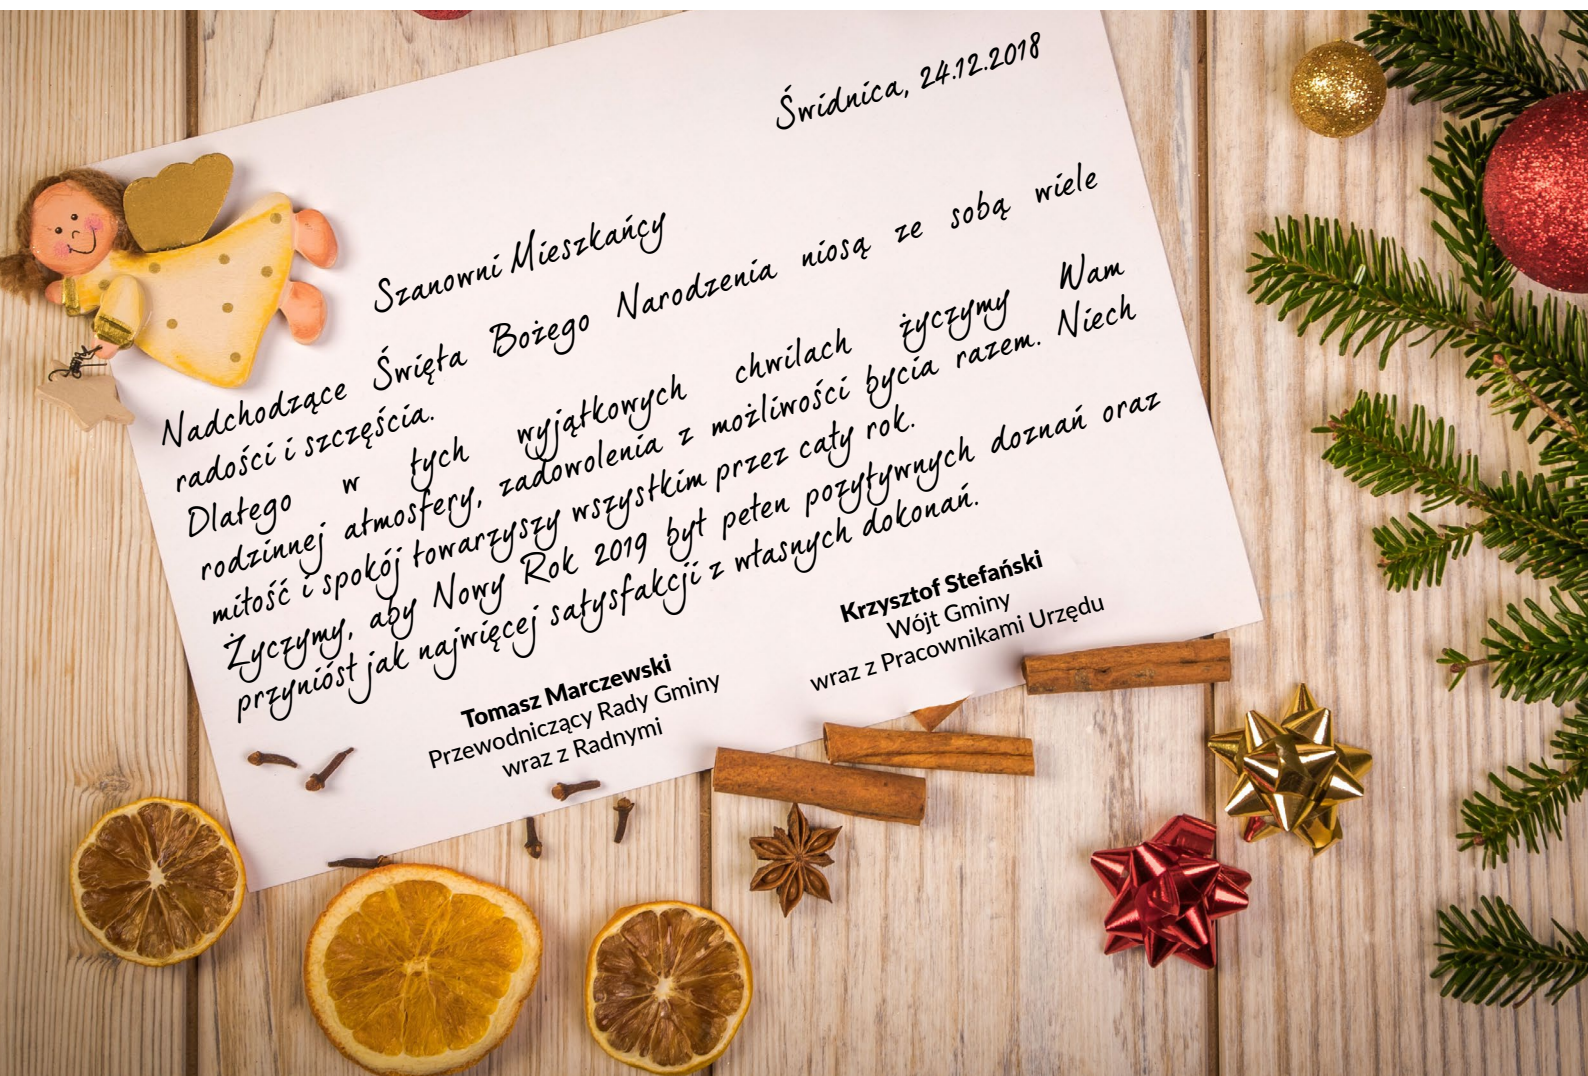 Świdnica, 24.12.2018
Szanowni Mieszkańcy
Nadchodzące Święta Bożego Narodzenia niosą ze sobą wiele
radości i szczęścia.
Dlatego w tych wyjątkowych chwilach życzymy Wam
rodzinnej atmosfery, zadowolenia z możliwości bycia razem. Niech
miłość i spokój towarzyszy wszystkim przez cały rok.
Życzymy, aby Nowy Rok 2019 był pełen pozytywnych doznań oraz
przyniósł jak najwięcej satysfakcji z własnych dokonań.
Tomasz Marczewski
Przewodniczący Rady Gminy
wraz z Radnymi
Krzysztof Stefański
Wójt Gminy
wraz z Pracownikami Urzędu